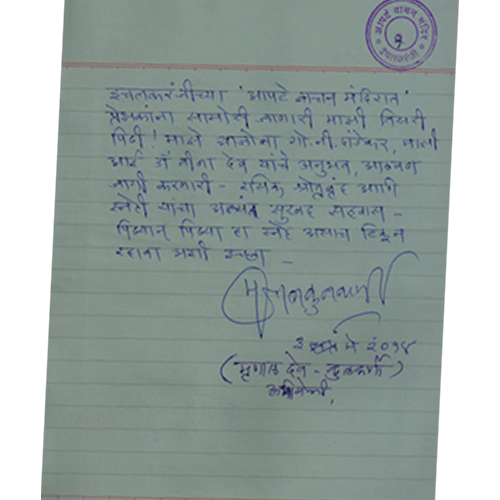 आपटे वाचन मंदिर
इचलकरंजी
इचलकरंजीच्या 'आपटे वाचन मंदिरात'
प्रेक्षकांना सामोरी जाणारी माझी तिसरी
पिढी! माझे आजोबा गो. नी. दांडेकर, माझी
आई डॉ वीणा देव यांचे अनुभव, आठवण
जागी करणारी - रसिक श्रोतृवृंद आणि
स्नेही यांचा अत्यंत सुखद सहवास -
पिढ्यान् पिढ्या हा स्नेह असाच टिकून
रहावा अशी इच्छा -
मे २०१४
(मृणाल देव - कुलकर्णी)
अभिनेत्री,